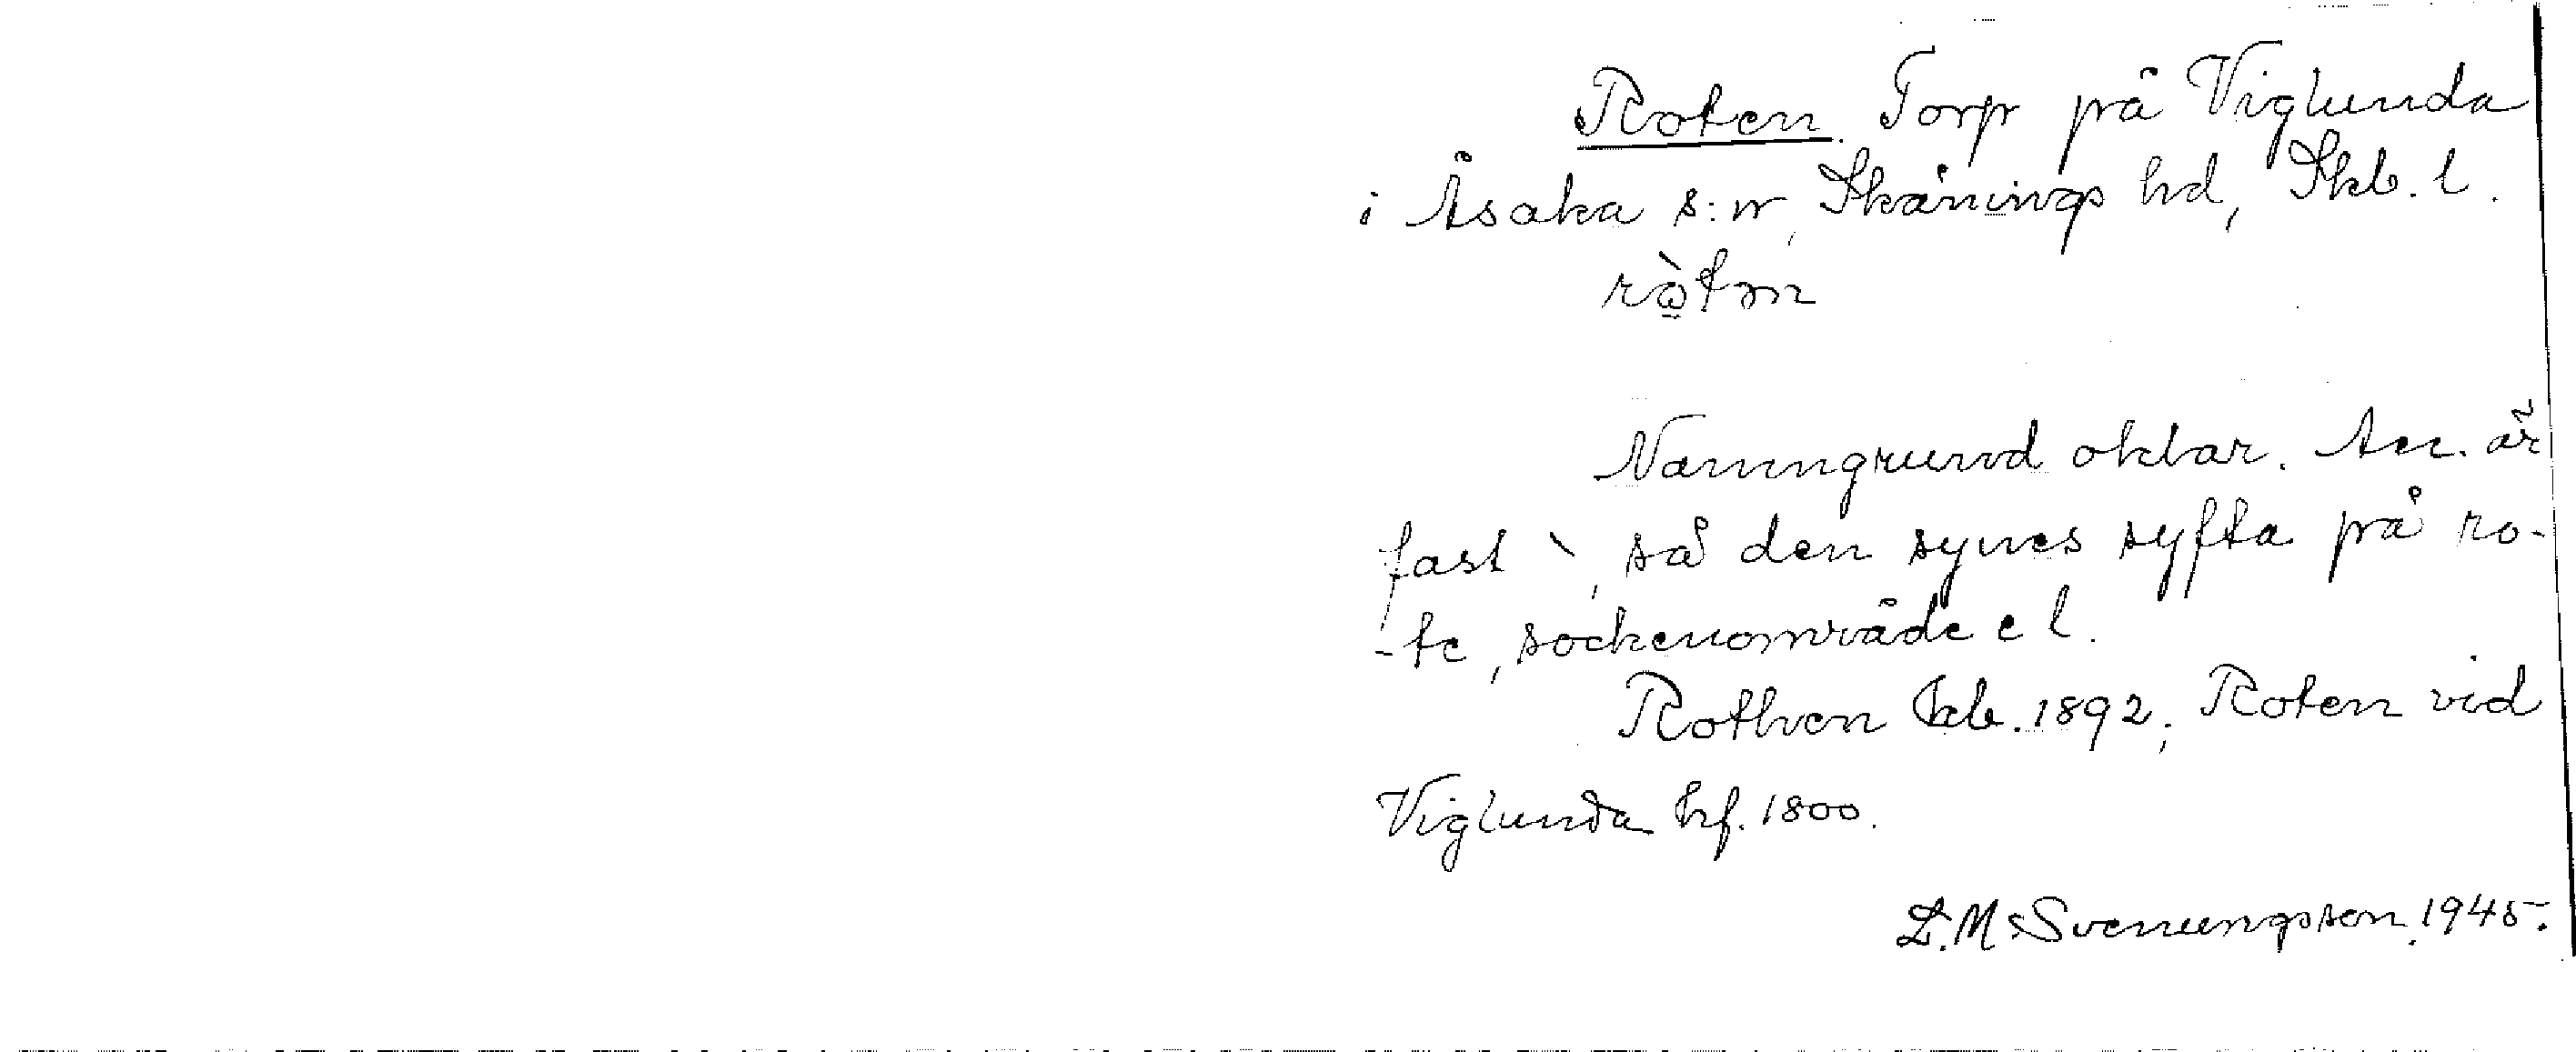 Roten. Torp på Viglunda
i Åsaka s:n, Skånings hd, Skb. l.
Namngrund oklar. Acc. är
fast \, så den synes syfta på ro-
-te, sockenområde e l.
Rothen Kb. 1892; Roten vid
Viglunda hf. 1800.
L.M. Svenungsson 1945.